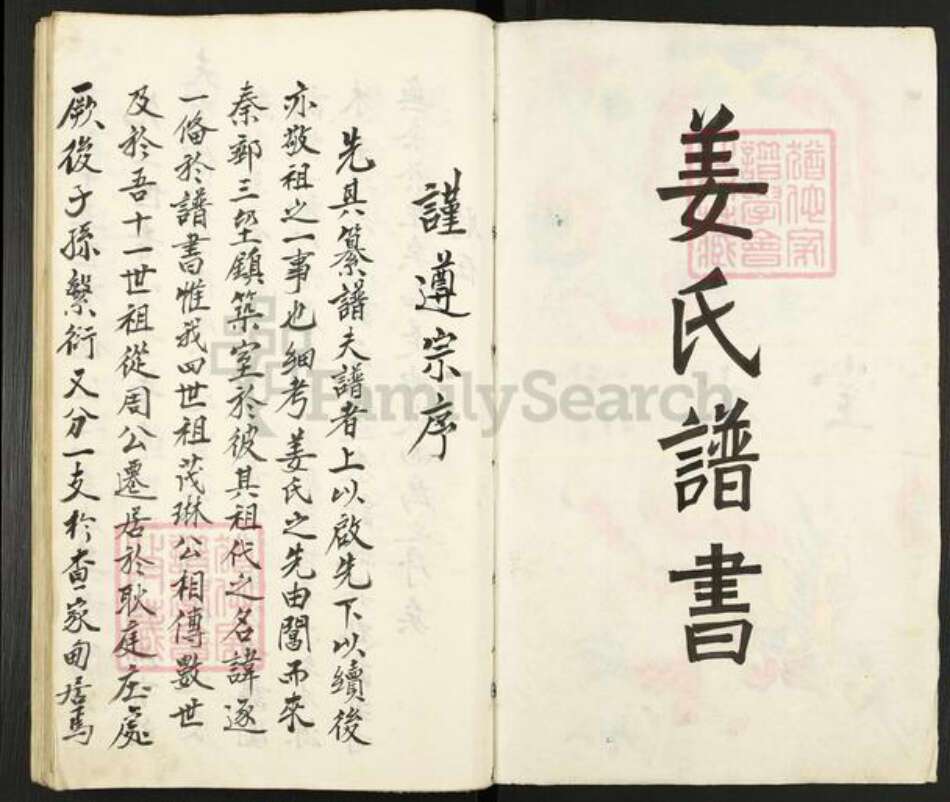 姜氏譜書
謹遵宗序
先具纂譜夫譜者上以啟先下以續後
亦敬祖之一事也細考姜氏之先由闖而來
秦郵三垛鎮築室於彼其祖代之名諱逐
一俻於譜書惟我四世祖茂琳公相傳數世
及於吾十一世祖從周公遷居於耿庭庄處
厥後子孫繁衍又分一支於查家甸居焉
FamilySearch